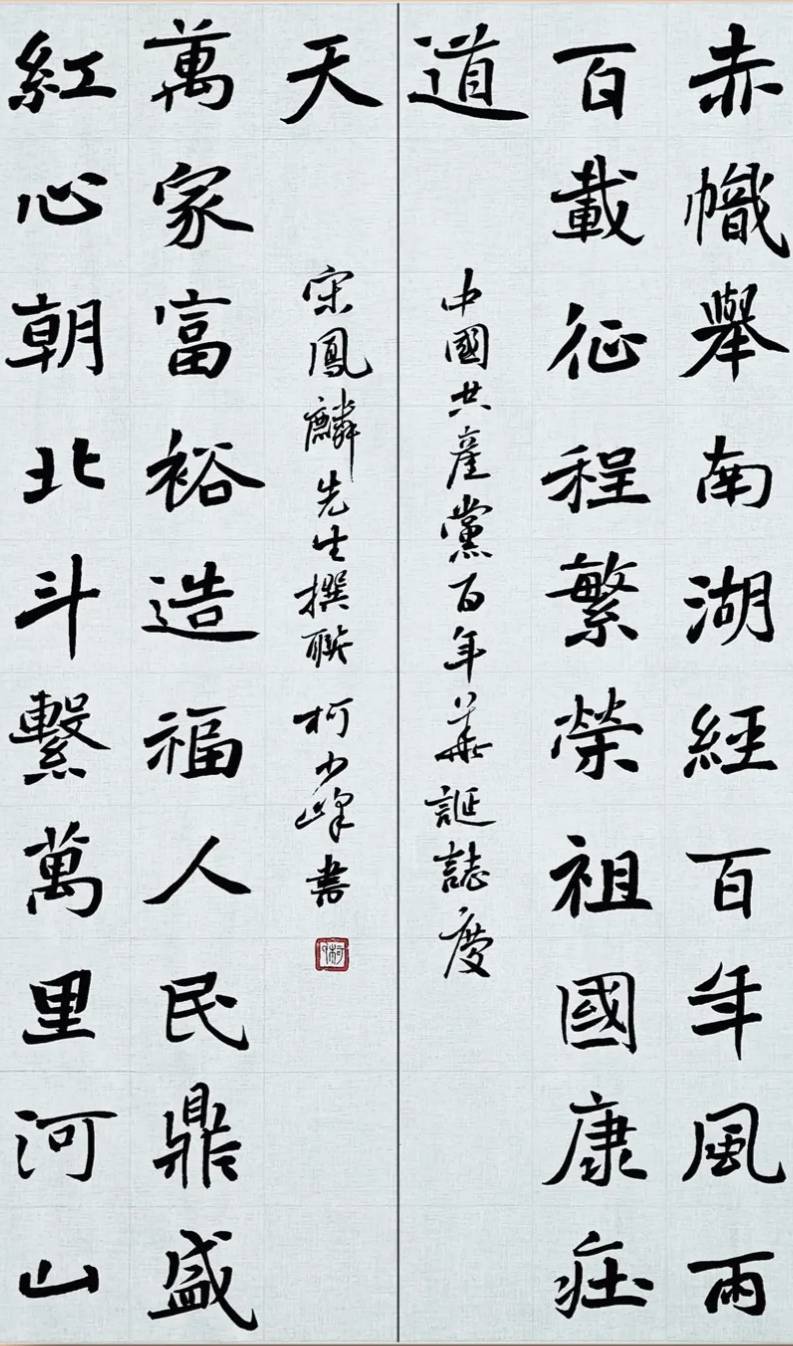 赤幟舉南湖經百年風雨
百載征程繁榮祖國康庄
道
中國共產黨百年華誕誌慶
紅心朝北斗繫萬里河山
萬家富裕造福人民鼎盛
天
宋鳳麟先生撰聯 柯少峰書